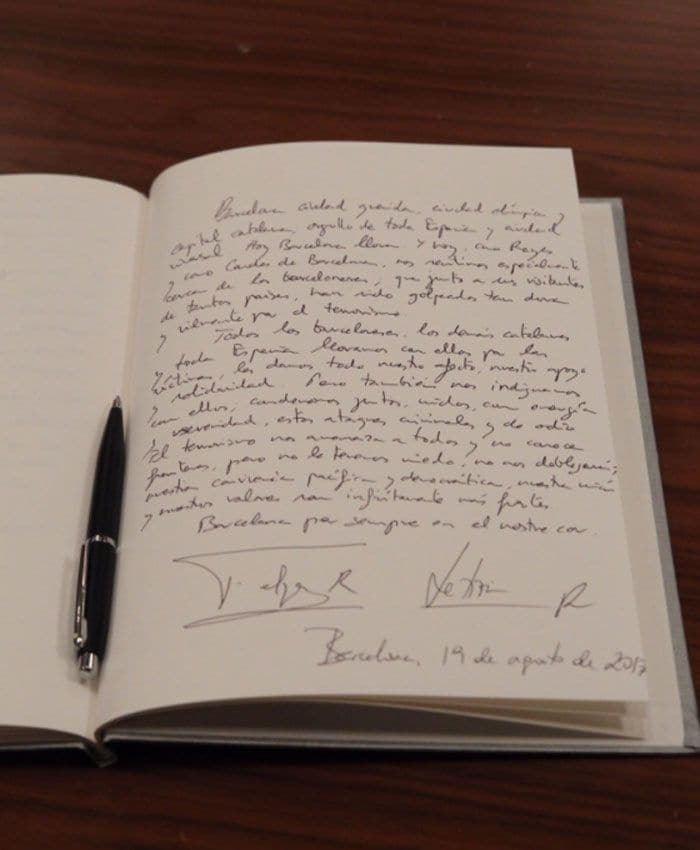 Barcelona ciudad querida, ciudad olímpica y
capital catalana, orgullo de toda España y ciudad
. Hoy Barcelona llora y hoy, como Reyes
y como Condes de Barcelona, nos sentimos especialmente
cerca de los barceloneses, que junto a sus visitantes
de tantos países, han sido golpeados tan dura
y vilmente por el terrorismo.
Todos los barceloneses, los demás catalanes
y toda España lloramos con ellos por las
víctimas, les damos todo nuestro afecto, nuestro apoyo
y solidaridad. Pero también nos indignamos
con ellos, condenamos juntos, unidos, con energía
y severidad, estos ataques criminales y de odio.
El terrorismo nos amenaza a todos y no conoce
fronteras, pero no le tenemos miedo, no nos doblegará;
nuestra convivencia pacífica y democrática, nuestra unión
y nuestros valores son infinitamente más fuertes.
Barcelona per sempre en el nostre cor.
Felipe R Letizia R
Barcelona, 19 de agosto de 2017